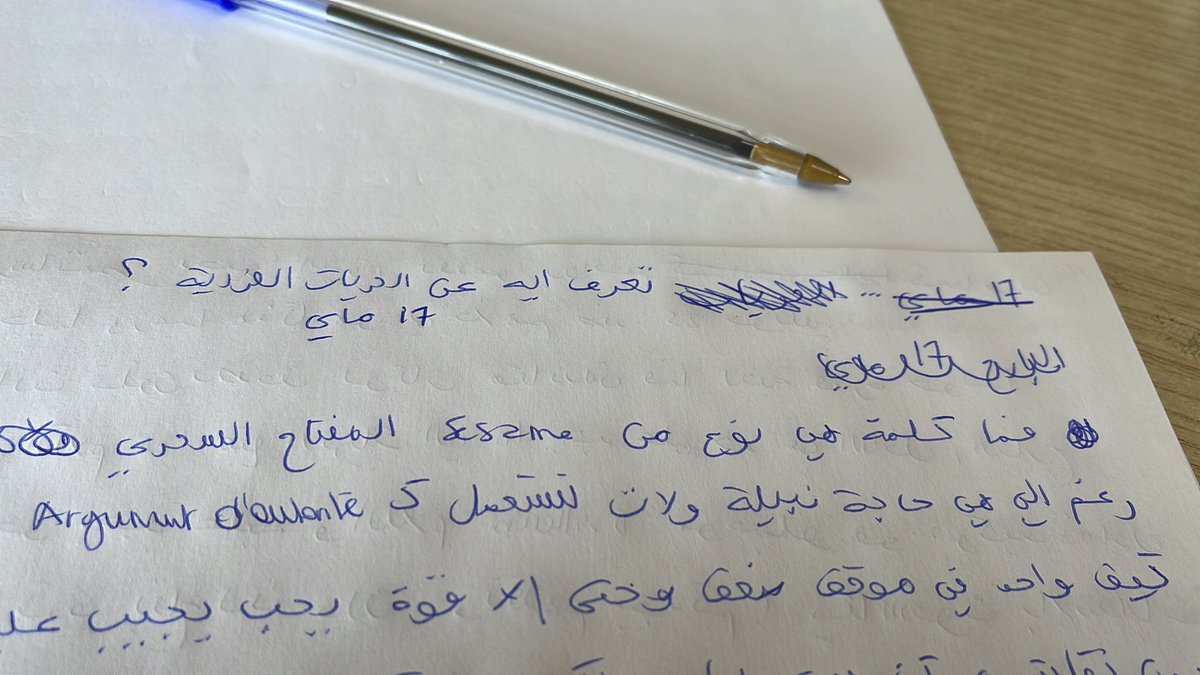 17 ماي ... تعرف ايه عن الحريات الفردية ؟
17 ماي
17 ماي
فما كلمة هي نوع من sesame المفتاح السحري
رغم الي هي حاجة نبيلة ولات تستعمل كـ Argument d'autorité
كيف واحد في موقف ضعف وحتى لا قوة يحب يجيب